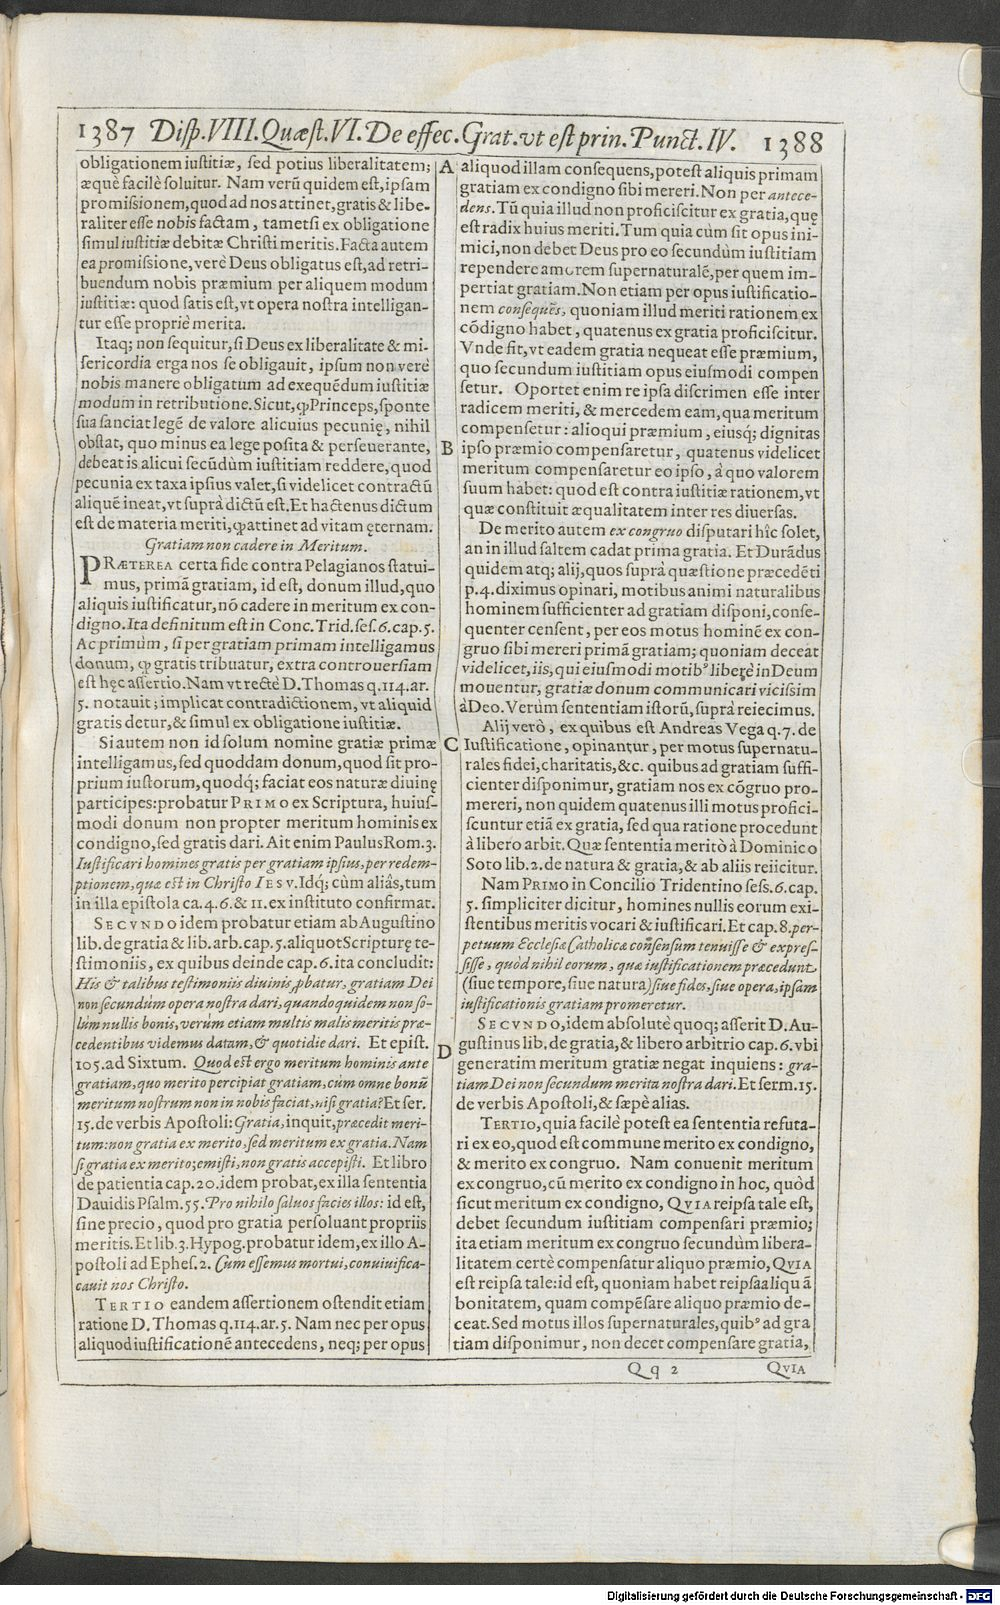 1387 Disp.VIII.Quæst.VI.De effec.Grat.vt est prin.Punct.IV. 1388
obligationem iustitiæ, sed potius liberalitatem;
æquè facilè soluitur. Nam verũ quidem est, ipsam
promissionem, quod ad nos attinet, gratis & libe-
raliter esse nobis factam, tametsi ex obligatione
simul iustitiæ debitæ Christi meritis. Facta autem
ea promissione, verè Deus obligatus est, ad retri-
buendum nobis præmium per aliquem modum
iustitiæ: quod satis est, vt opera nostra intelligan-
tur esse propriè merita.
Itaq; non sequitur, si Deus ex liberalitate & mi-
sericordia erga nos se obligauit, ipsum non verè
nobis manere obligatum ad exequẽdum iustitiæ
modum in retributione. Sicut, ꝙ Princeps, sponte
sua sanciat legẽ de valore alicuius pecunię, nihil
obstat, quo minus ea lege posita & perseuerante,
debeat is alicui secũdùm iustitiam reddere, quod
pecunia ex taxa ipsius valet, si videlicet contractũ
aliquẽ ineat, vt suprà dictũ est. Et hactenus dictum
est de materia meriti, ꝙ attinet ad vitam ęternam.
Gratiam non cadere in Meritum.
PRÆTEREA certa fide contra Pelagianos statui-
mus, primã gratiam, id est, donum illud, quo
aliquis iustificatur, nõ cadere in meritum ex con-
digno. Ita definitum est in Conc. Trid. ses. 6. cap. 5.
Ac primùm, si per gratiam primam intelligamus
donum, ꝙ gratis tribuatur, extra controuersiam
est hęc assertio. Nam vt rectè D. Thomas q. 114. ar.
5. notauit; implicat contradictionem, vt aliquid
gratis detur, & simul ex obligatione iustitiæ.
Si autem non id solum nomine gratiæ primæ
intelligamus, sed quoddam donum, quod sit pro-
prium iustorum, quodq; faciat eos naturæ diuinę
participes: probatur PRIMO ex Scriptura, huius-
modi donum non propter meritum hominis ex
condigno, sed gratis dari. Ait enim Paulus Rom. 3.
Iustificari homines gratis per gratiam ipsius, per redem-
ptionem, quæ est in Christo IESV. Idq; cùm aliâs, tum
in illa epistola ca. 4. 6. & 11. ex instituto confirmat.
SECVNDO idem probatur etiam ab Augustino
lib. de gratia & lib. arb. cap. 5. aliquot Scripturę te-
stimoniis, ex quibus deinde cap. 6. ita concludit:
His & talibus testimoniis diuinis ꝓbatur, gratiam Dei
non secundùm opera nostra dari, quandoquidem non so-
lùm nullis bonis, verùm etiam multis malis meritis præ-
cedentibus videmus datam, & quotidie dari. Et epist.
105. ad Sixtum. Quod est ergo meritum hominis ante
gratiam, quo merito percipiat gratiam, cùm omne bonũ
meritum nostrum non in nobis faciat, nisi gratia? Et ser.
15. de verbis Apostoli: Gratia, inquit, præcedit meri-
tum: non gratia ex merito, sed meritum ex gratia. Nam
si gratia ex merito; emisti, non gratis accepisti. Et libro
de patientia cap. 20. idem probat, ex illa sententia
Dauidis Psalm. 55. Pro nihilo saluos facies illos: id est,
sine precio, quod pro gratia persoluant propriis
meritis. Et lib. 3. Hypog. probatur idem, ex illo A-
postoli ad Ephes. 2. Cum essemus mortui, conuiuifica-
cauit nos Christo.
TERTIO eandem assertionem ostendit etiam
ratione D. Thomas q. 114. ar. 5. Nam nec per opus
aliquod iustificationẽ antecedens, neq; per opus
A
B
C
D
aliquod illam consequens, potest aliquis primam
gratiam ex condigno sibi mereri. Non per antece-
dens. Tũ quia illud non proficiscitur ex gratia, quę
est radix huius meriti. Tum quia cùm sit opus ini-
mici, non debet Deus pro eo secundùm iustitiam
rependere amorem supernaturalẽ, per quem im-
pertiat gratiam. Non etiam per opus iustificatio-
nem consequẽs, quoniam illud meriti rationem ex
cõdigno habet, quatenus ex gratia proficiscitur.
Vnde fit, vt eadem gratia nequeat esse præmium,
quo secundum iustitiam opus eiusmodi compen
setur. Oportet enim re ipsa discrimen esse inter
radicem meriti, & mercedem eam, qua meritum
compensetur: alioqui præmium, eiusq; dignitas
ipso præmio compensaretur, quatenus videlicet
meritum compensaretur eo ipso, à quo valorem
suum habet: quod est contra iustitiæ rationem, vt
quæ constituit æqualitatem inter res diuersas.
De merito autem ex congruo disputari hîc solet,
an in illud saltem cadat prima gratia. Et Durãdus
quidem atq; alij, quos suprà quæstione præcedẽti
p. 4. diximus opinari, motibus animi naturalibus
hominem sufficienter ad gratiam disponi, conse-
quenter censent, per eos motus hominẽ ex con-
gruo sibi mereri primã gratiam; quoniam deceat
videlicet, iis, qui eiusmodi motibꝰ liberè in Deum
mouentur, gratiæ donum communicari vicissim
à Deo. Verùm sententiam istorũ, suprà reiecimus.
Alij verò, ex quibus est Andreas Vega q. 7. de
Iustificatione, opinantur, per motus supernatu-
rales fidei, charitatis, &c. quibus ad gratiam suffi-
cienter disponimur, gratiam nos ex cõgruo pro-
mereri, non quidem quatenus illi motus profici-
scuntur etiã ex gratia, sed qua ratione procedunt
à libero arbit. Quæ sententia meritò à Dominico
Soto lib. 2. de natura & gratia, & ab aliis reiicitur.
Nam PRIMO in Concilio Tridentino sess. 6. cap.
5. simpliciter dicitur, homines nullis eorum exi-
stentibus meritis vocari & iustificari. Et cap. 8. per-
petuum Ecclesiæ Catholicæ consensum tenuisse & expres-
sisse, quòd nihil eorum, quæ iustificationem præcedunt
(siue tempore, siue natura) siue fides, siue opera, ipsam
iustificationis gratiam promeretur.
SECVNDO, idem absolutè quoq; asserit D. Au-
gustinus lib. de gratia, & libero arbitrio cap. 6. vbi
generatim meritum gratiæ negat inquiens: gra-
tiam Dei non secundum merita nostra dari. Et serm. 15.
de verbis Apostoli, & sæpè alias.
TERTIO, quia facilè potest ea sententia refuta-
ri ex eo, quod est commune merito ex condigno,
& merito ex congruo. Nam conuenit meritum
ex congruo, cũ merito ex condigno in hoc, quòd
sicut meritum ex condigno, QVIA reipsa tale est,
debet secundum iustitiam compensari præmio;
ita etiam meritum ex congruo secundùm libera-
litatem certè compensatur aliquo præmio, QVIA
est reipsa tale: id est, quoniam habet reipsa aliquã
bonitatem, quam compẽsare aliquo præmio de-
ceat. Sed motus illos supernaturales, quibꝰ ad gra
tiam disponimur, non decet compensare gratia,
Qq 2 QVIA
Digitalisierung gefördert durch die Deutsche Forschungsgemeinschaft - DFG